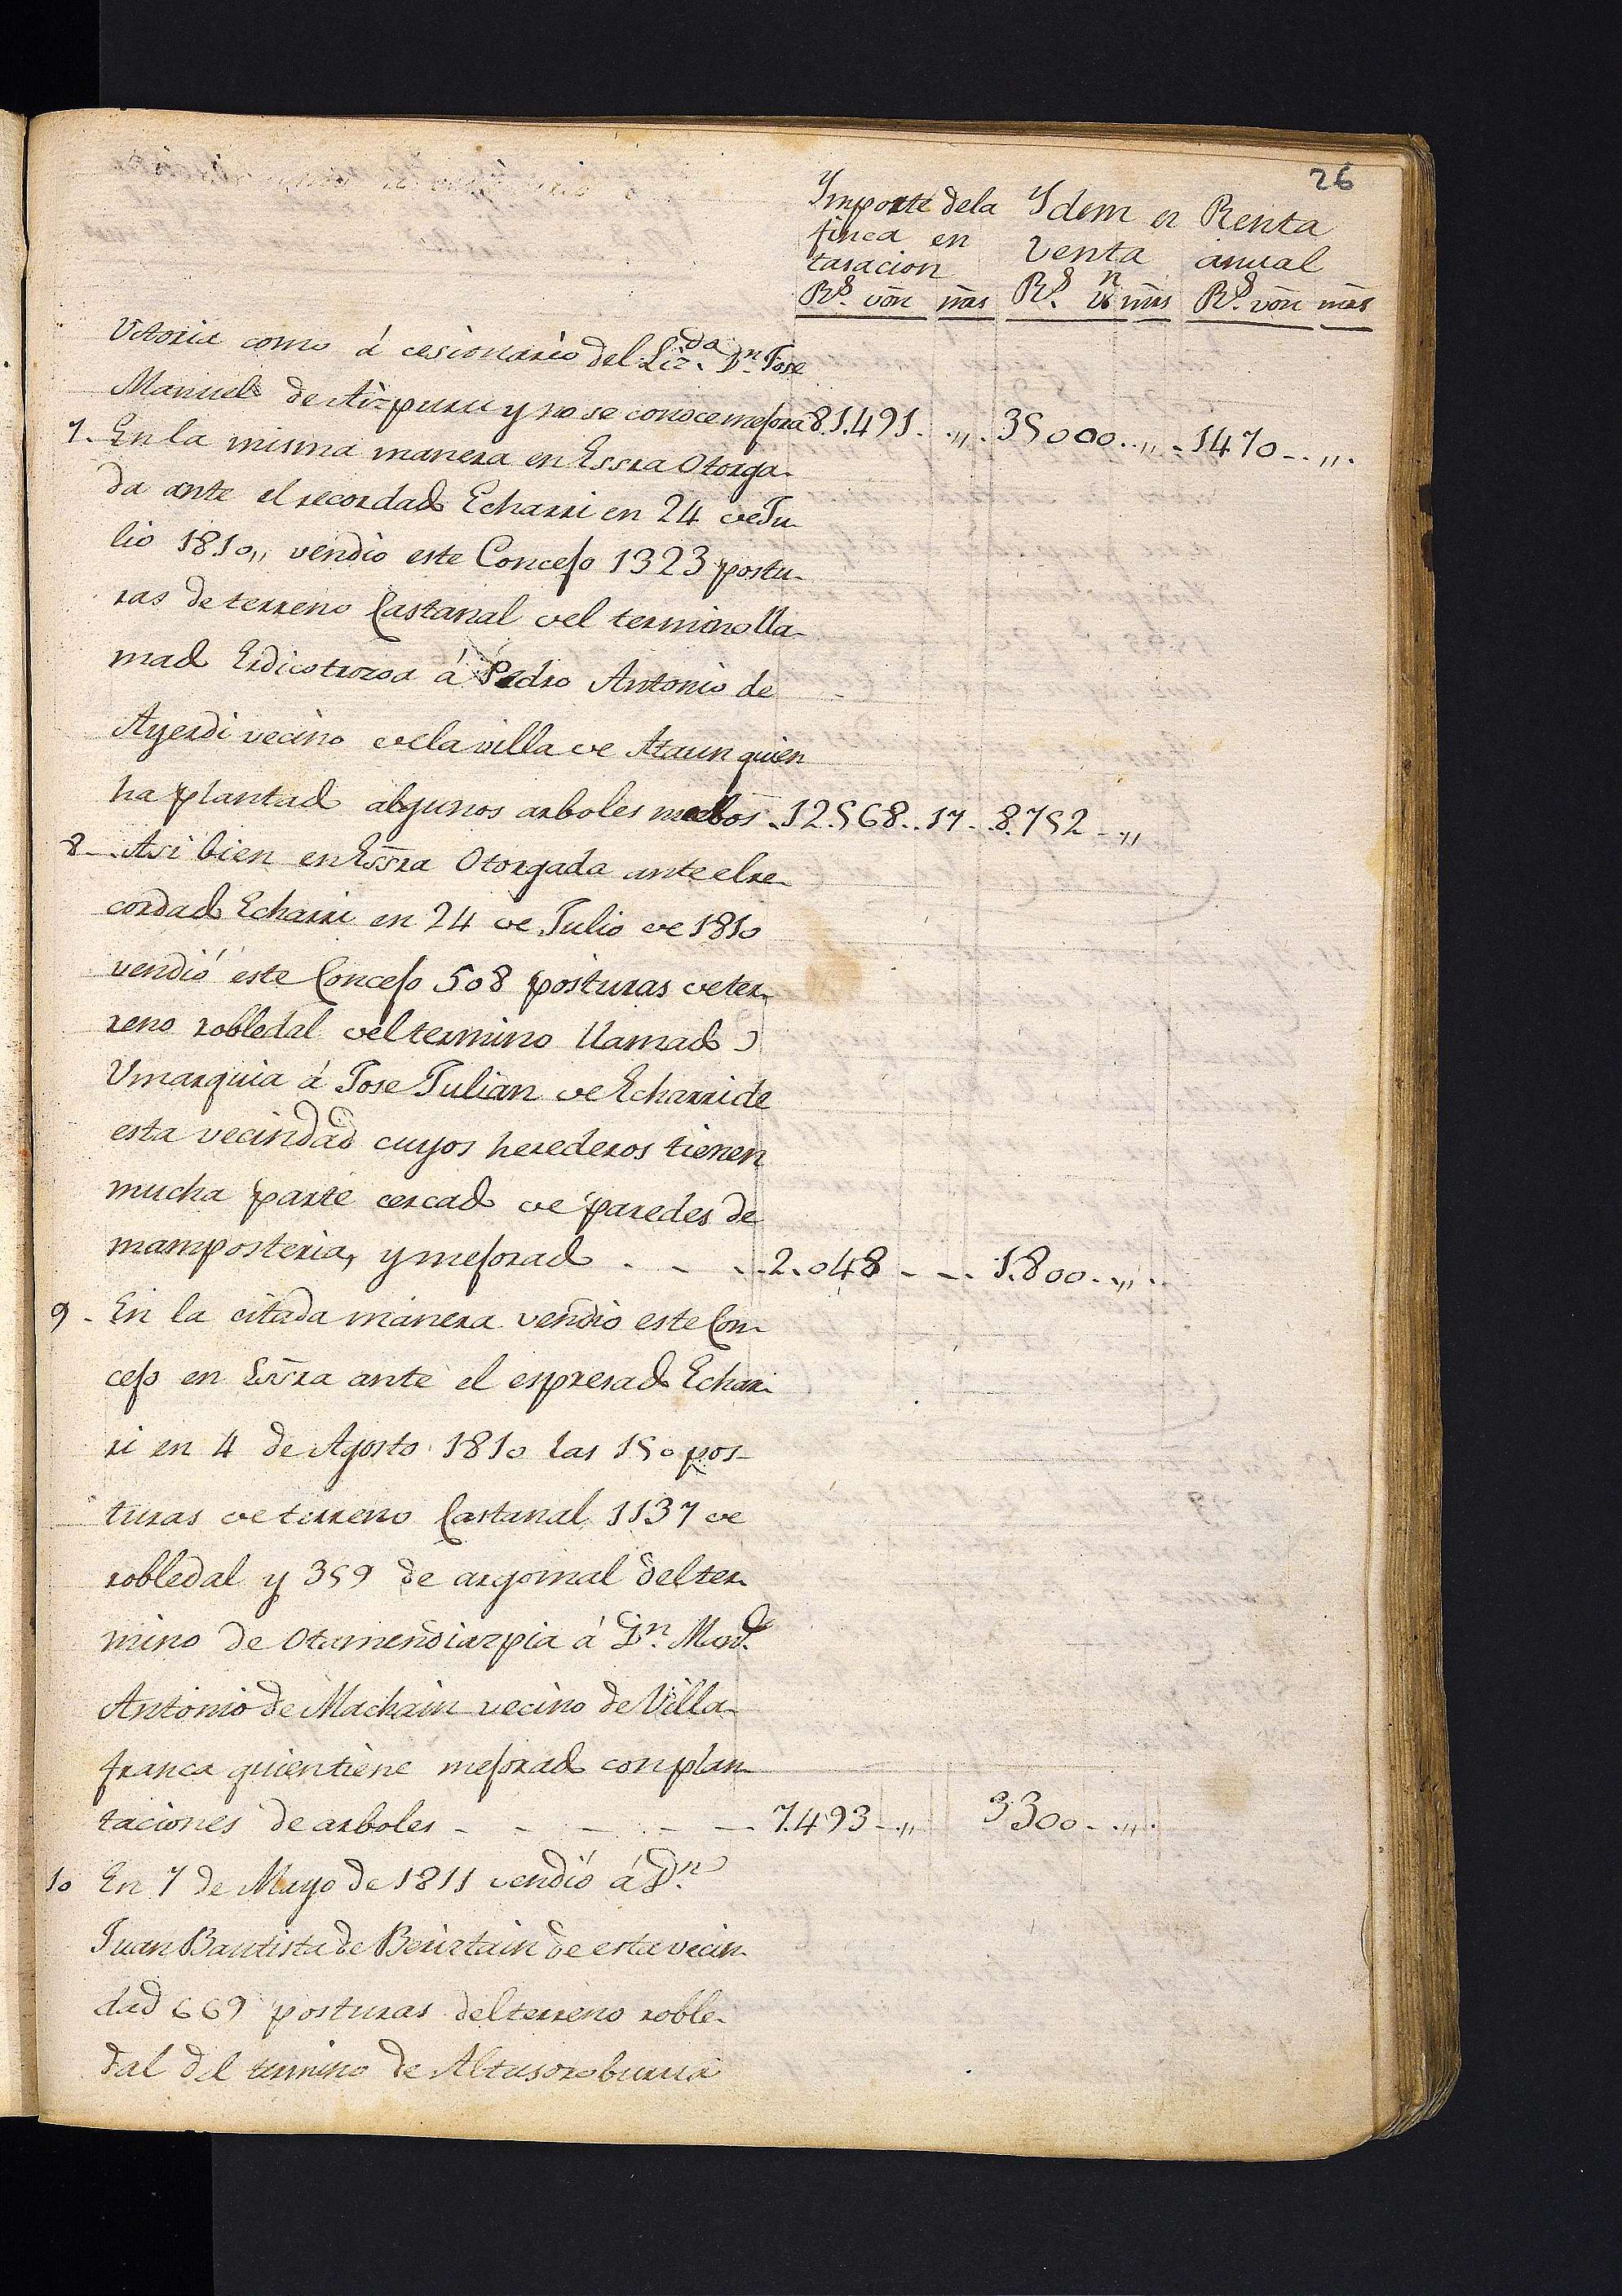 26
Ymporte dela Ydem en Renta
finca en venta anual
tasacion
Rs. von mrs Rs. vn mrs Rs. von mrs
Vitoria como á cesionario del Lizdo. Dn. Jose
Manuel de Aizpuru y no se conoce mejora 81.491. „. 35000..„. 1470...„.
7. En la misma manera en Essra Otorga-
da ante el recordado Echarri en 24 de Ju-
lio 1810„ vendio este Concejo 1323 postu-
ras de terreno Castanal del termino lla-
mado Erdicotrozoa á Pedro Antonio de
Ayerdi vecino de la villa de Ataun quien
ha plantado algunos arboles .12.568..17. 8.752..„
8. Asi bien en Essra Otorgada ante el re-
cordado Echarri en 24 de Julio de 1810
vendió este Concejo 508 posturas de ter-
reno robledal del termino llamado
Vmarquia á Jose Julian de Echarri de
esta vecindad cuyos herederos tienen
mucha parte cercado de paredes de
mamposteria, y mejorado . - . . 2.048 - - . 1.800..„.
9. En la citada manera vendio este Con-
cejo en Essra ante el espresado Echar-
ri en 4 de Agosto 1810 las 150 pos-
turas de terreno Castanal 1137 de
robledal y 359 de argomal del ter-
mino de Otamendiazpia á Dn. Manl.
Antonio de Machain vecino de Villa-
franca quien tiene mejorado con plan-
taciones de arboles - - - - - 7.493 - „ 3300 - .„.
10 En 7 de Mayo de 1811 vendió á Dn.
Juan Bautista de Beriztain de esta vecin-
dad 669 posturas del terreno roble-
dal del termino de Altusoroburua